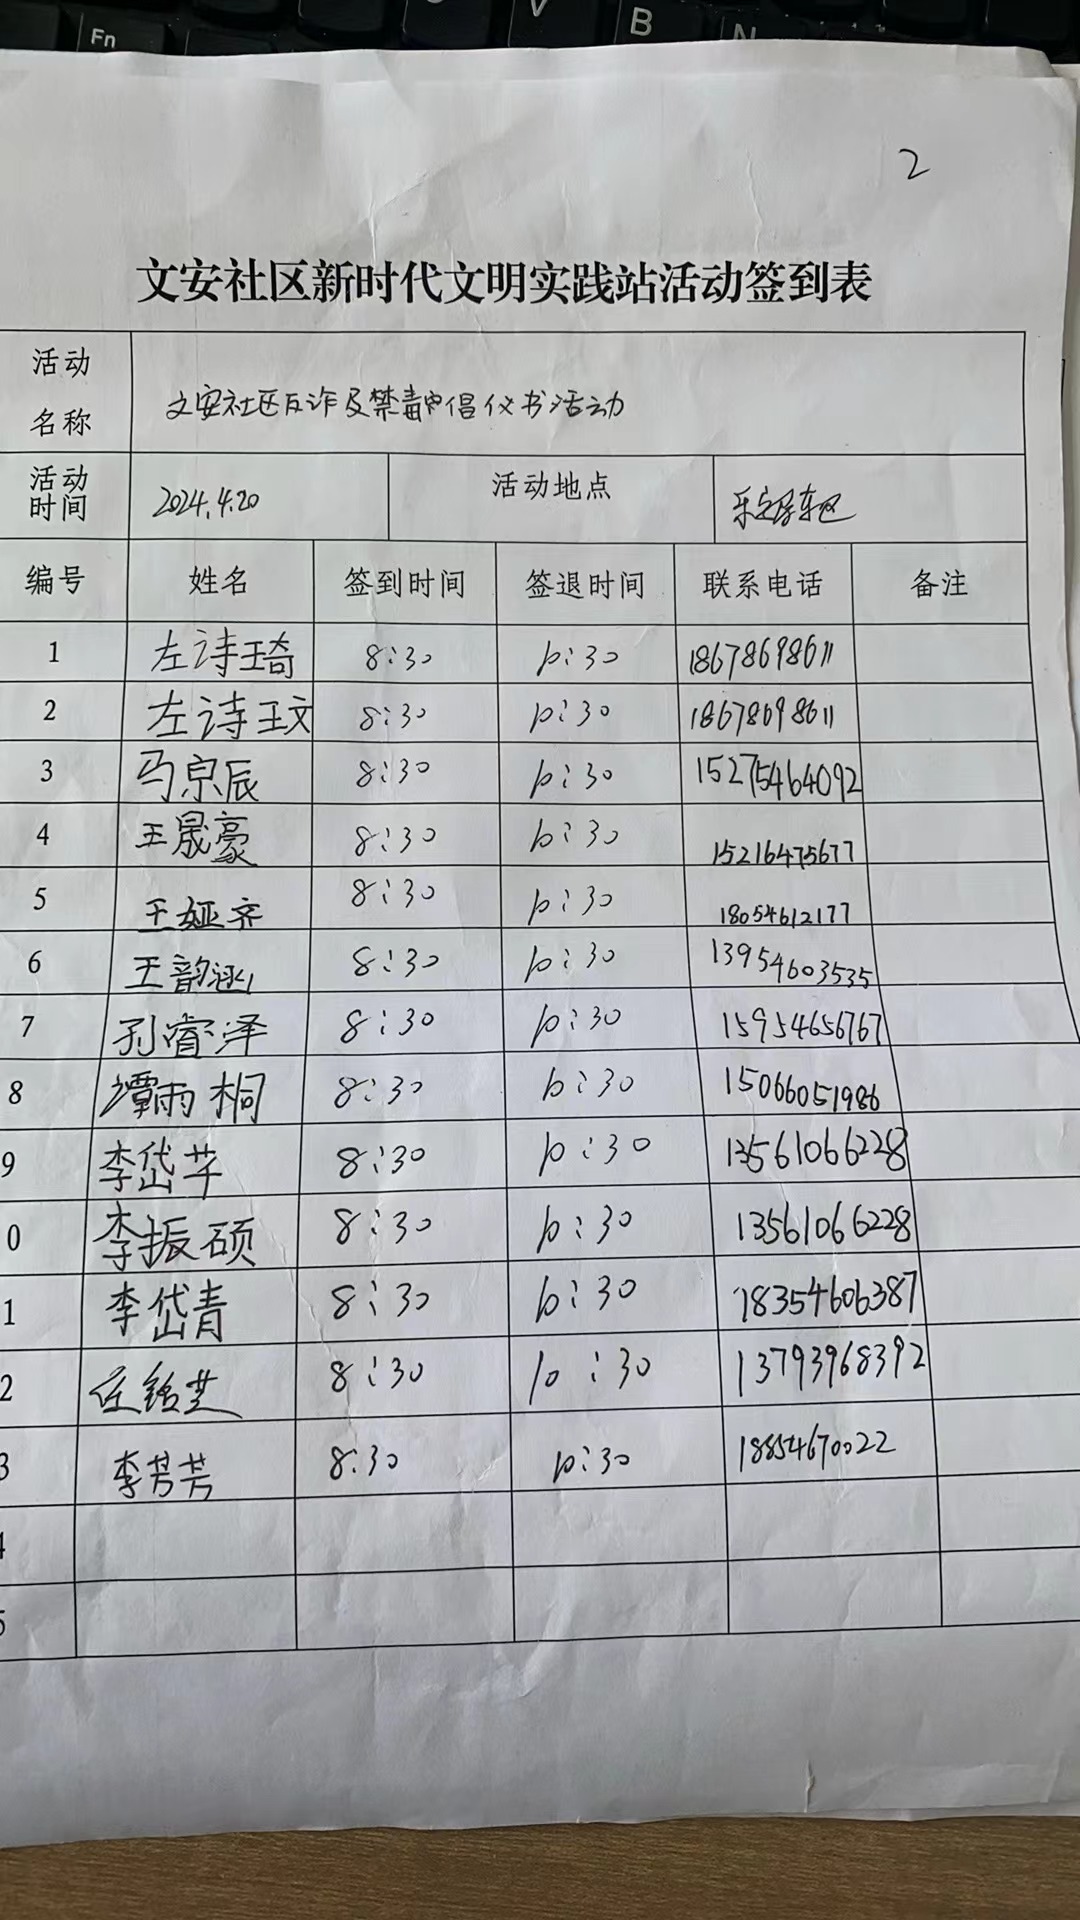 Fn
V
B
N
2
文安社区新时代文明实践站活动签到表
活动名称 文安社区反诈及禁毒倡仪书活动
活动时间 2024.4.20 活动地点
编号 姓名 签到时间 签退时间 联系电话 备注
1 左诗琦 8:30 10:30 18678698611
2 左诗玟 8:30 10:30 18678698611
3 马宗辰 8:30 10:30 15275464092
4 王晟豪 8:30 10:30 15216475677
5 王娅齐 8:30 10:30 18054612177
6 王韵涵 8:30 10:30 13954603535
7 孙睿泽 8:30 10:30 15954656767
8 谭雨桐 8:30 10:30 15066051986
9 李岱芊 8:30 10:30 13561066228
0 李振硕 8:30 10:30 13561066228
1 李岱青 8:30 10:30 18354606387
2 8:30 10:30 13793968392
3 李芳芳 8:30 10:30 18854670022
4
5